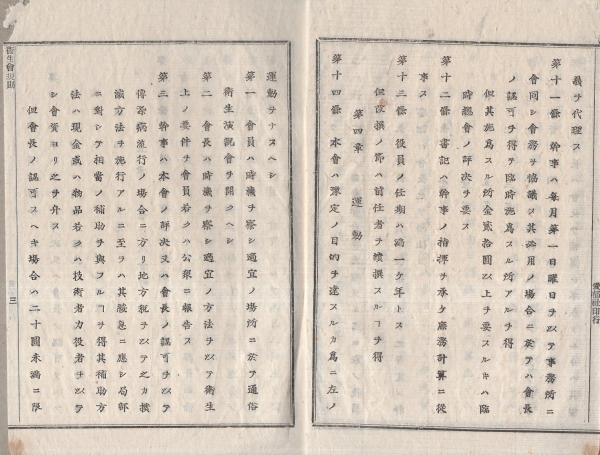 義ヲ代理ス
第十一條 幹事ハ毎月第一日曜日ヲ以テ事務所ニ
會同シ會務ヲ協議ス其必用ノ場合ニ於テハ會長
ノ認可ヲ得テ臨時施爲スル所アルヲ得
但其施爲スル所金貳拾圓以上ヲ要スルキハ臨
時總會ノ評決ヲ要ス
第十二條 書記ハ幹事ノ指揮ヲ承ケ庶務計算ニ從
事ス
第十三條 役員ノ任期ハ滿一ケ年トス
但改撰ノ節ハ前任者ヲ續撰スルヿヲ得
第四章 運動
第十四條 本會ハ豫定ノ目的ヲ達スルカ爲ニ左ノ
愛知社印行
運動ヲナスヘシ
第一 會員ハ時機ヲ察シ適宜ノ塲所ニ於テ通俗
衛生演說會ヲ開クヘシ
第二 會長ハ時機ヲ察シ適宜ノ方法ヲ以テ衛生
上ノ要件ヲ會員若クハ公衆ニ報告ス
第三 幹事ハ本會ノ評決又ハ會長ノ認可ヲ以テ
傳染病流行ノ場合ニ方リ地方税ヲ以テ之カ撲
滅方法ヲ施行アルニ至ラハ其緩急ニ應シ局部
ニ對シテ相當ノ補助ヲ與フルヿヲ得其補助方
法ハ現金或ハ物品若クハ技術者力役者ヲ以テ
シ會資ヨリ之ヲ弁ス
但會長ノ認可スヘキ場合ハ二十圓未滿ニ限
衛生會規則
三